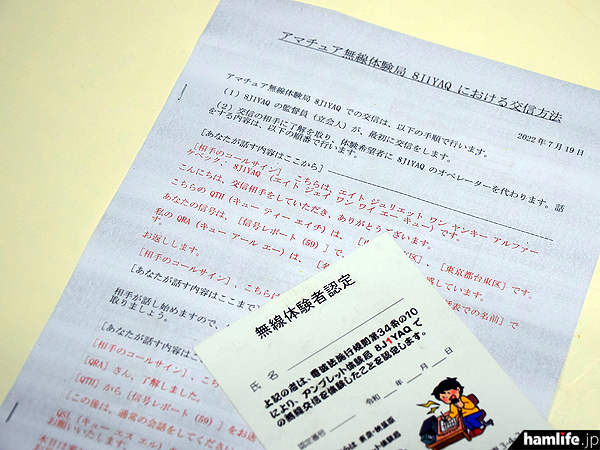 アマチュア無線体験局 8J1YAQ における交信方法
2022年7月19日
アマチュア無線体験局 8J1YAQ での交信は、以下の手順で行います。
(1) 8J1YAQ の監督員(立会人)が、最初に交信をします。
(2) 交信の相手に了解を取り、体験希望者に 8J1YAQ のオペレーターを代わります。話
をする内容は、以下の順番で行います。
[あなたが話す内容はここから]
[相手のコールサイン]、こちらは、エイト ジュリエット ワン ヤンキー アルファー
ケベック、8J1YAQ (エイト ジェイ ワン ワイ エー キュー) です。
こんにちは、交信相手をしていただき、ありがとうございます。
こちらの QTH (キュー ティー エイチ) は、
[東京都台東区] です。
あなたの信号は、[信号レポート (59)] で、
しています。
私の QRA (キュー アール エー) は、
表での名前] で
す。
お返しします。
[相手のコールサイン]、こちらは
[あなたが話す内容はここまで
相手が話し始めますので、
取りましょう。
[あなたが話す内容はここ
[相手のコールサイン]、こち
[QRA] さん、了解しました。
[QTH] から [信号レポート (59)] をお送
[この後は、通常の会話をしてください
QSL (キュー エス エル)
お願いいたします。
本日は
無線体験者認定
氏名
上記の者は、電波法施行規則第34条の10
により、アンプレット体験局 8J1YAQ で
の無線交信を体験したことを認定します。
令和 年 月 日
認定番号
体験局
hamlife.jp